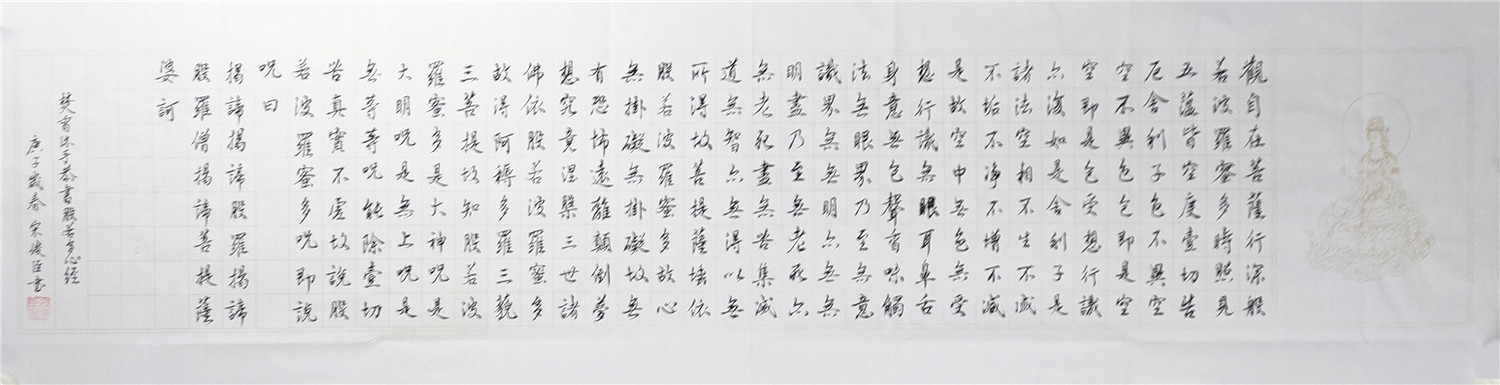 觀自在菩薩行深般
若波羅蜜多時照見
五蘊皆空度壹切苦
厄舍利子色不異空
空不異色色即是空
空即是色受想行識
亦復如是舍利子是
諸法空相不生不滅
不垢不淨不增不減
是故空中無色無受
想行識無眼耳鼻舌
身意無色聲香味觸
法無眼界乃至無意
識界無無明亦無無
明盡乃至無老死亦
無老死盡無苦集滅
道無智亦無得以無
所得故菩提薩埵依
般若波羅蜜多故心
無掛礙無掛礙故無
有恐怖遠離顛倒夢
想究竟涅槃三世諸
佛依般若波羅蜜多
故得阿耨多羅三藐
三菩提故知般若波
羅蜜多是大神呪是
大明呪是無上呪是
無等等呪能除壹切
苦真實不虛故說般
若波羅蜜多呪即說
呪曰
揭諦揭諦般羅揭諦
般羅僧揭諦菩提薩
婆訶
焚香沐手恭書般若多心經
庚子歲春 宋 書